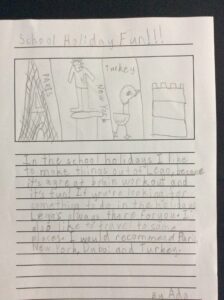 School Holiday Fun!!!
PARIS
New York
Turkey
In the school holidays I like
to make things out of Lego, because
it's a great brain workout and
it's fun! If you're looking for
something to do in the holidays
Lego's always there for you. I
also like to travel to some
places. I would recommend Paris
New York, Dubai and Turkey.
By Ada